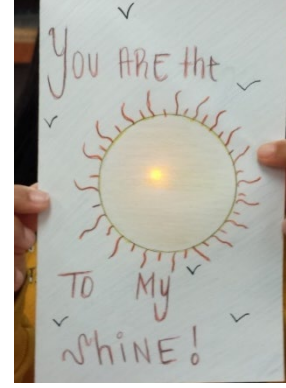 You ARE the
TO My
ShiNE!